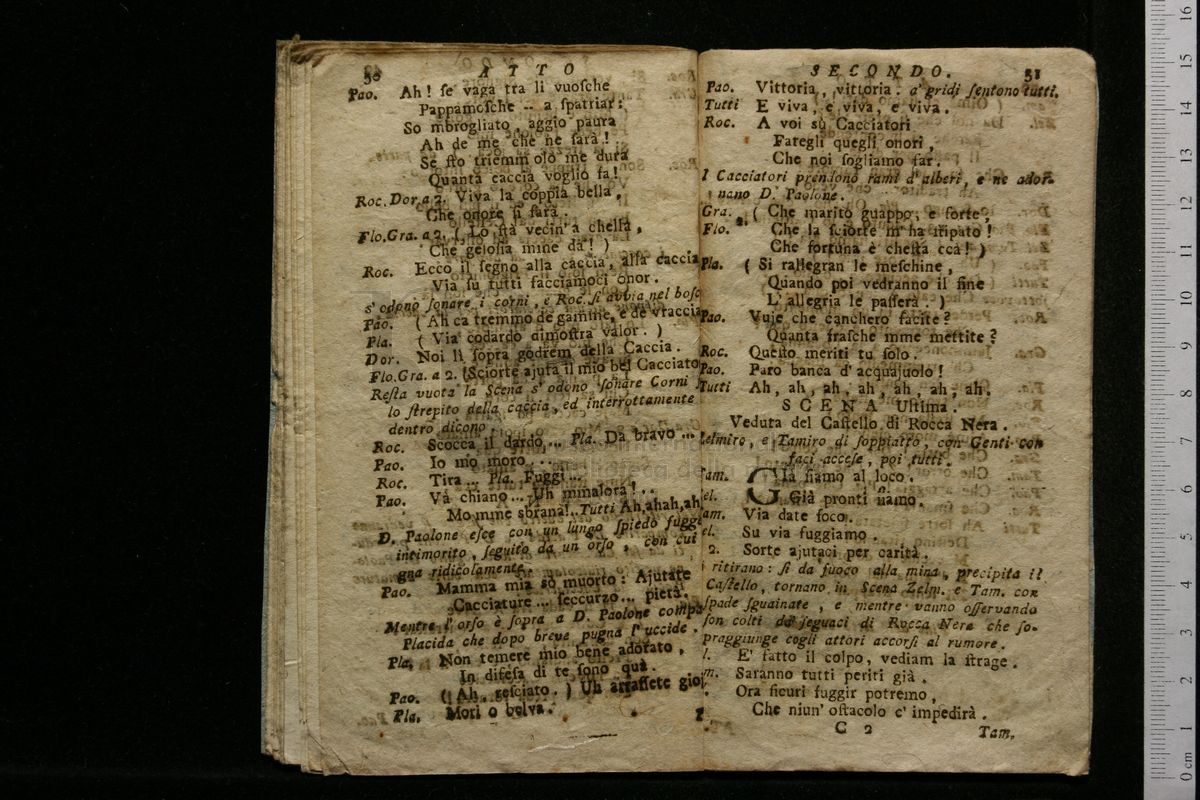 50 ATTO
Pao. Ah! ſe vaga tra li vuoſche
Pappamoſche -- a ſpatriar:
So mbrogliato, aggio paura
Ah de me che ne ſarà!
Se ſto triemm'olo me dura
Quanta caccia voglio fa!
Roc.Dor.a 2. Viva la coppia bella,
Che onore ſi farà.
Flo.Gra. a 2. ( Lo ſta vecin'a cheſſa,
Che geloſia mme dà! )
Roc. Ecco il ſegno alla caccia, alla caccia
Via ſu tutti facciamoci onor.
s'odono ſonare i corni, e Roc. ſi avvia nel boſc
Pao. ( Ah ca tremmo de gamme, e de vraccia
Pla. ( Via codardo dimoſtra valor. )
Dor. Noi lì ſopra godrem della Caccia.
Flo.Gra. a 2. (Sciorte ajuta il mio bel Cacciato
Reſta vuota la Scena s'odono ſonare Corni
lo ſtrepito della caccia, ed interrottamente
dentro dicono.
Roc. Scocca il dardo... Pla. Da bravo ...
Pao. Io mo moro...
Roc. Tira... Pla. Fuggi...
Pao. Và chiano... Uh mmalora!..
Mo mme sbrana!.. Tutti Ah, ahah, ah
D. Paolone eſce con un lungo ſpiedo fuggi
intimorito, ſeguito da un orſo, con cui
gna ridicolamente.
Pao. Mamma mia so muorto: Ajutate
Cacciature... ſeccurzo... pietà.
Mentre l'orſo è ſopra a D. Paolone compa
Placida che dopo breve pugna l'uccide.
Pla. Non temere mio bene adorato,
In difeſa di te ſono quà.
Pao. ( Ah, reſciato. ) Uh arraſſete gioj
Pla. Mori o belva.
SECONDO. 51
Pao. Vittoria, vittoria. a' gridi ſentono tutti.
Tutti E viva, e viva, e viva.
Roc. A voi sù Cacciatori
Fategli quegli onori,
Che noi ſogliamo far.
I Cacciatori prendono rami d'alberi, e ne ador-
nano D. Paolone.
Gra. ( Che marito guappo, e forte,
Flo. 2. Che la ſciorte m'ha ſtipato!
Che fortuna è cheſta ccà! )
Pla. ( Si rallegran le meſchine,
Quando poi vedranno il fine
L'allegria le paſſerà. )
Pao. Vuje che canchero facite?
Quanta fraſche mme mettite?
Roc. Queſto meriti tu ſolo.
Pao. Paro banca d'acquajuolo!
Tutti Ah, ah, ah, ah, ah, ah, ah.
SCENA Ultima.
Veduta del Caſtello di Rocca Nera.
Zelmira, e Tamiro di ſoppiatto, con Genti con
faci acceſe, poi tutti.
Tam. Già ſiamo al loco.
el. Già pronti ſiamo.
am. Via date foco.
el. Su via fuggiamo.
2. Sorte ajutaci per carità.
i ritirano: ſi da fuoco alla mina, precipita il
Caſtello, tornano in Scena Zelm. e Tam. con
ſpade ſguainate, e mentre vanno oſſervando
ſon colti da ſeguaci di Rocca Nera che ſo-
praggiunge cogli attori accorſi al rumore.
l. E' fatto il colpo, vediam la ſtrage.
m. Saranno tutti periti già.
Ora ſicuri fuggir potremo,
Che niun'oſtacolo c'impedirà.
C 2 Tam.